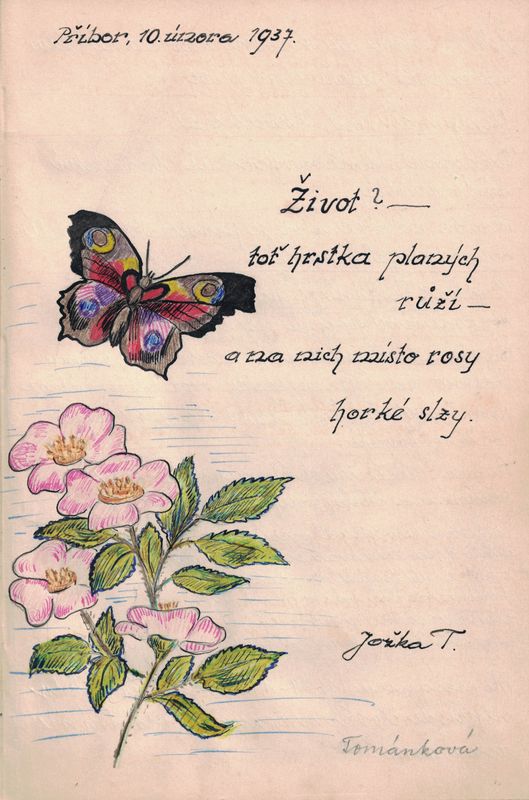 Příbor, 10. února 1937.
Život? —
toť hrstka planých
růží —
a na nich místo rosy
horké slzy.
Jožka T.
Tománková